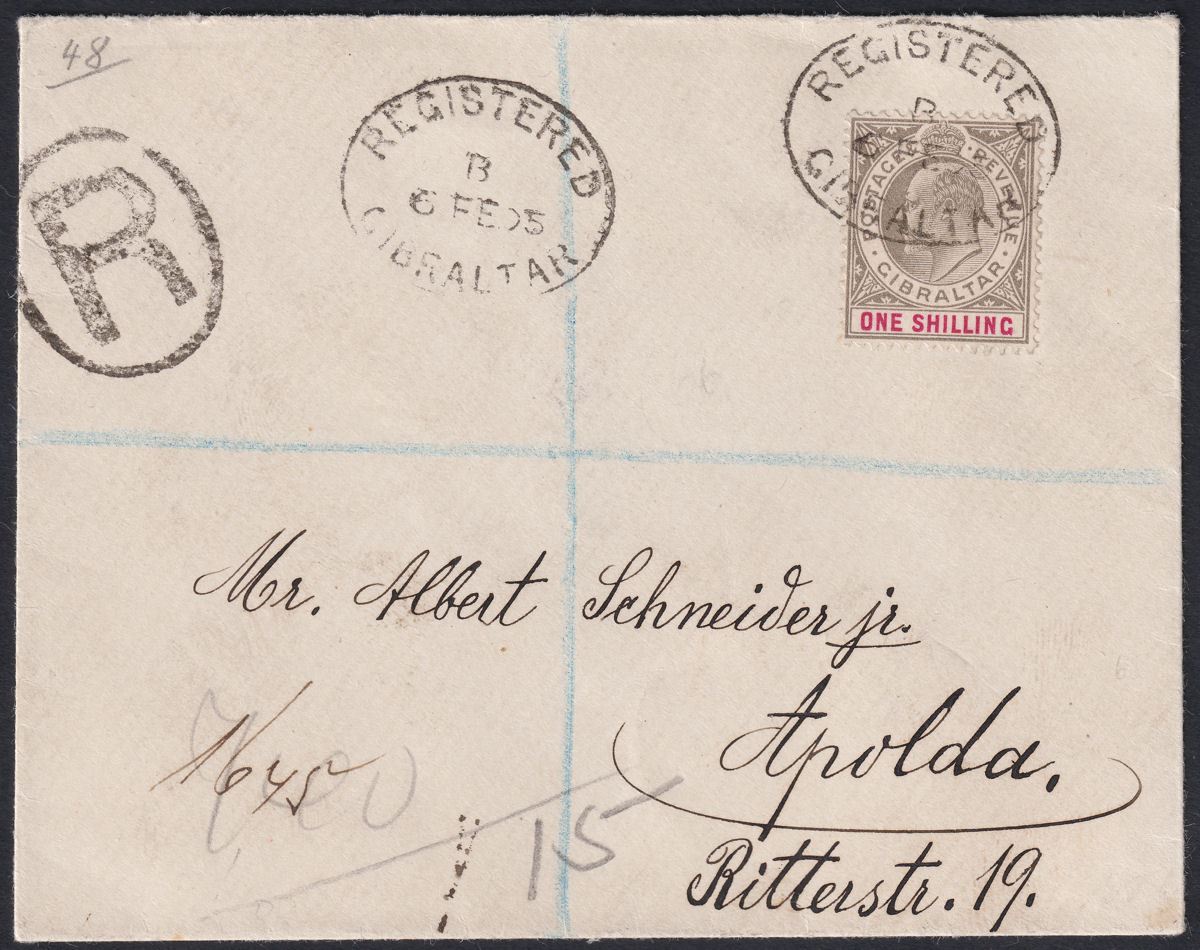 48
R
REGISTERED
B
6 FE 05
GIBRALTAR
REGISTERED
B
GIBRALTAR
POSTAGE & REVENUE
GIBRALTAR
ONE SHILLING
Mr. Albert Schneider jr.
Apolda.
Ritterstr. 19.
1645
15